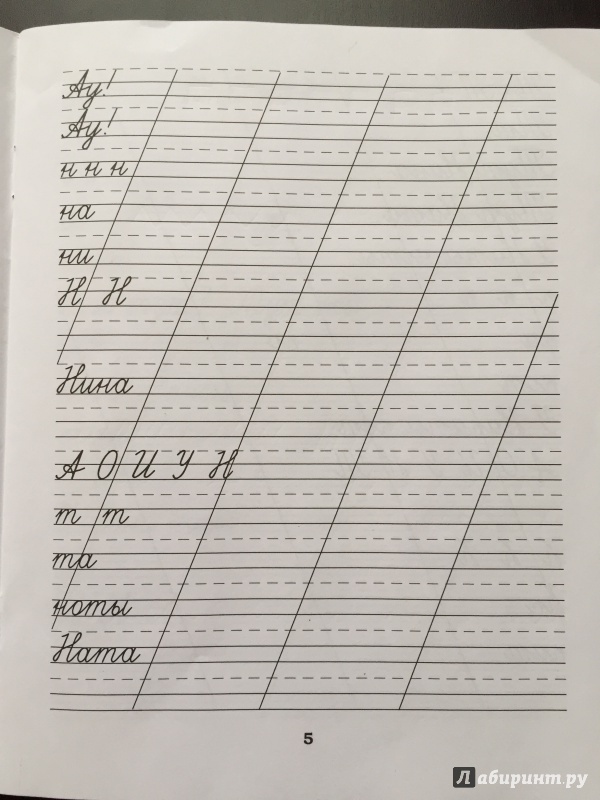 Ау!
Ау!
н н н
на
ни
Н Н
Нина
А О И У Н
т т
та
ноты
Ната
5
Лабиринт.ру